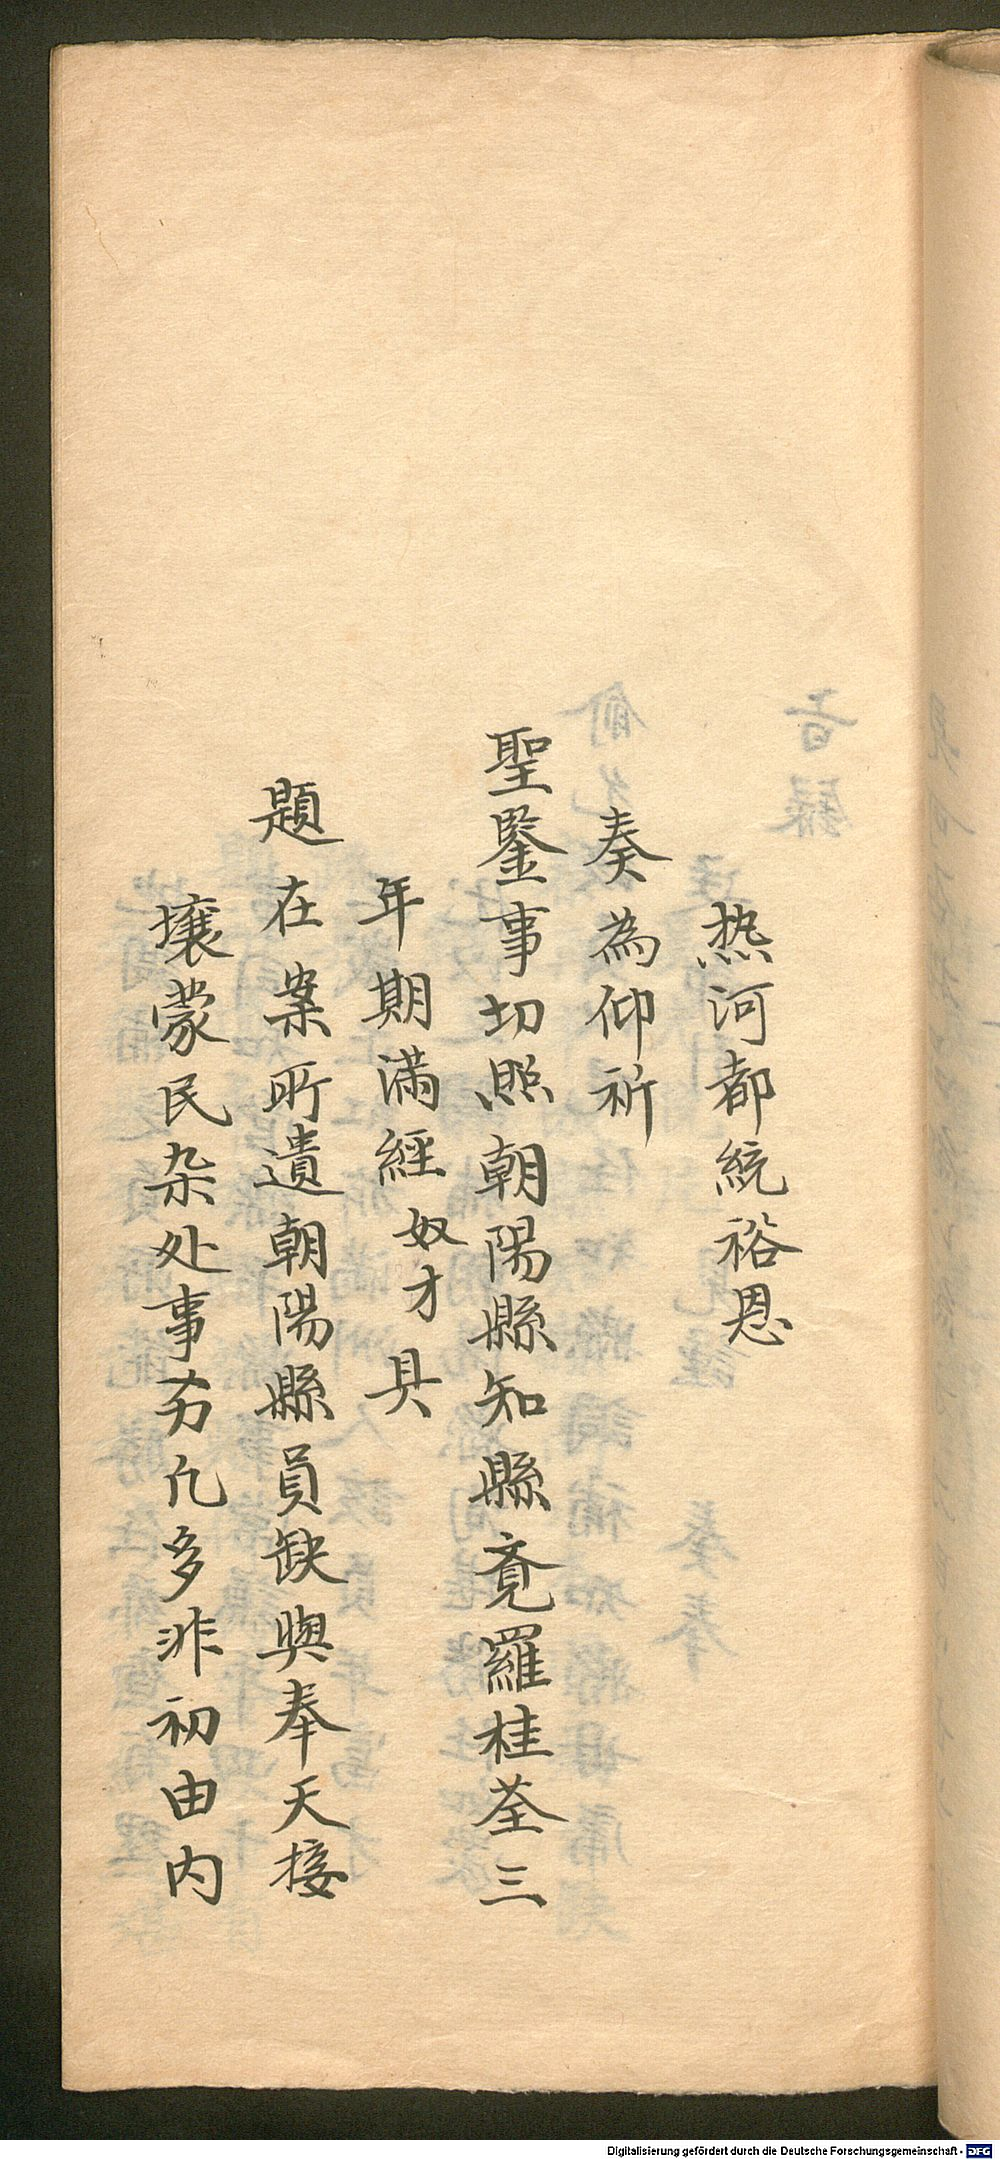 热河都統裕恩
奏為仰祈
聖鑒事切照朝陽縣知縣覔羅桂荃三
年期滿經奴才具
題在案所遺朝陽縣員缺與奉天接
壤蒙民杂处事务凢多非初由内
Digitalisierung gefördert durch die Deutsche Forschungsgemeinschaft - DFG